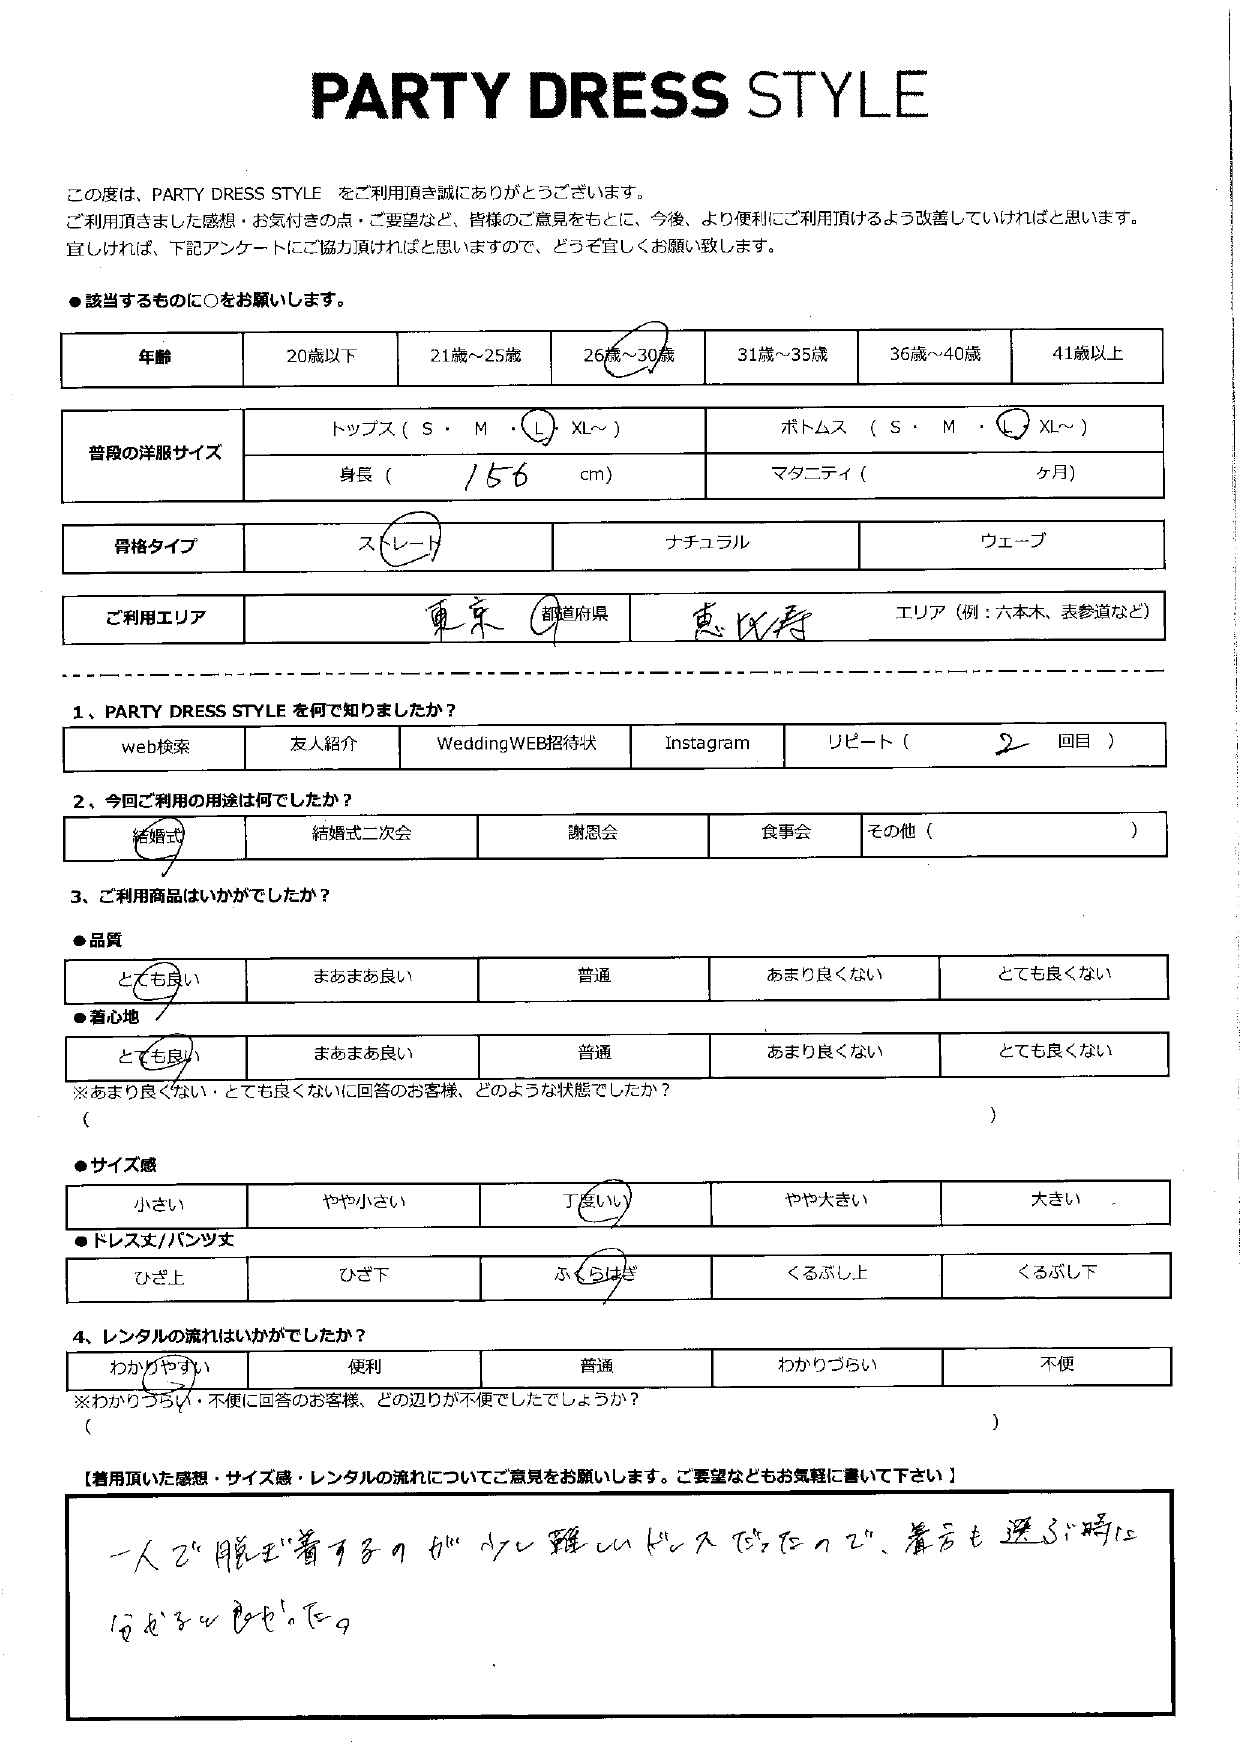 PARTY DRESS STYLE
この度は、PARTY DRESS STYLE をご利用頂き誠にありがとうございます。
ご利用頂きました感想・お気付きの点・ご要望など、皆様のご意見をもとに、今後、より便利にご利用頂けるよう改善していければと思います。
宜しければ、下記アンケートにご協力頂ければと思いますので、どうぞ宜しくお願い致します。
●該当するものに○をお願いします。
年齢 20歳以下 21歳～25歳 26歳～30歳 31歳～35歳 36歳～40歳 41歳以上
普段の洋服サイズ
トップス ( S ・ M ・ L ・ XL～ ) ボトムス ( S ・ M ・ L ・ XL～ )
身長 ( 156 cm) マタニティ ( ヶ月)
骨格タイプ ストレート ナチュラル ウェーブ
ご利用エリア 東京 都道府県 恵比寿 エリア（例：六本木、表参道など）
1、PARTY DRESS STYLE を何で知りましたか？
web検索 友人紹介 WeddingWEB招待状 Instagram リピート ( 2 回目 )
2、今回ご利用の用途は何でしたか？
結婚式 結婚式二次会 謝恩会 食事会 その他 ( )
3、ご利用商品はいかがでしたか？
●品質
とても良い まあまあ良い 普通 あまり良くない とても良くない
●着心地
とても良い まあまあ良い 普通 あまり良くない とても良くない
※あまり良くない・とても良くないに回答のお客様、どのような状態でしたか？
( )
●サイズ感
小さい やや小さい 丁度いい やや大きい 大きい
●ドレス丈/パンツ丈
ひざ上 ひざ下 ふくらはぎ くるぶし上 くるぶし下
4、レンタルの流れはいかがでしたか？
わかりやすい 便利 普通 わかりづらい 不便
※わかりづらい・不便に回答のお客様、どの辺りが不便でしたでしょうか？
( )
【着用頂いた感想・サイズ感・レンタルの流れについてご意見をお願いします。ご要望などもお気軽に書いて下さい 】
一人で脱ぎ着するのが少し難しいドレスだったので、着方も選ぶ時に
分かると良かった。